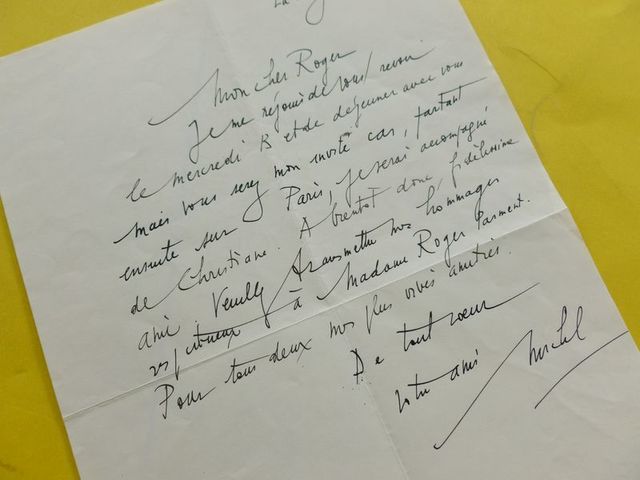 La
Mon cher Roger
Je me réjouis de vous revoir
le mercredi 13 et de déjeuner avec vous
mais vous serez mon invité car, partant
ensuite sur Paris, je serai accompagné
de Christiane. A bientôt donc fidélissime
ami. Veuillez transmettre nos hommages
respectueux à Madame Roger Parment.
Pour tous deux nos plus vives amitiés.
De tout coeur
votre ami Michel